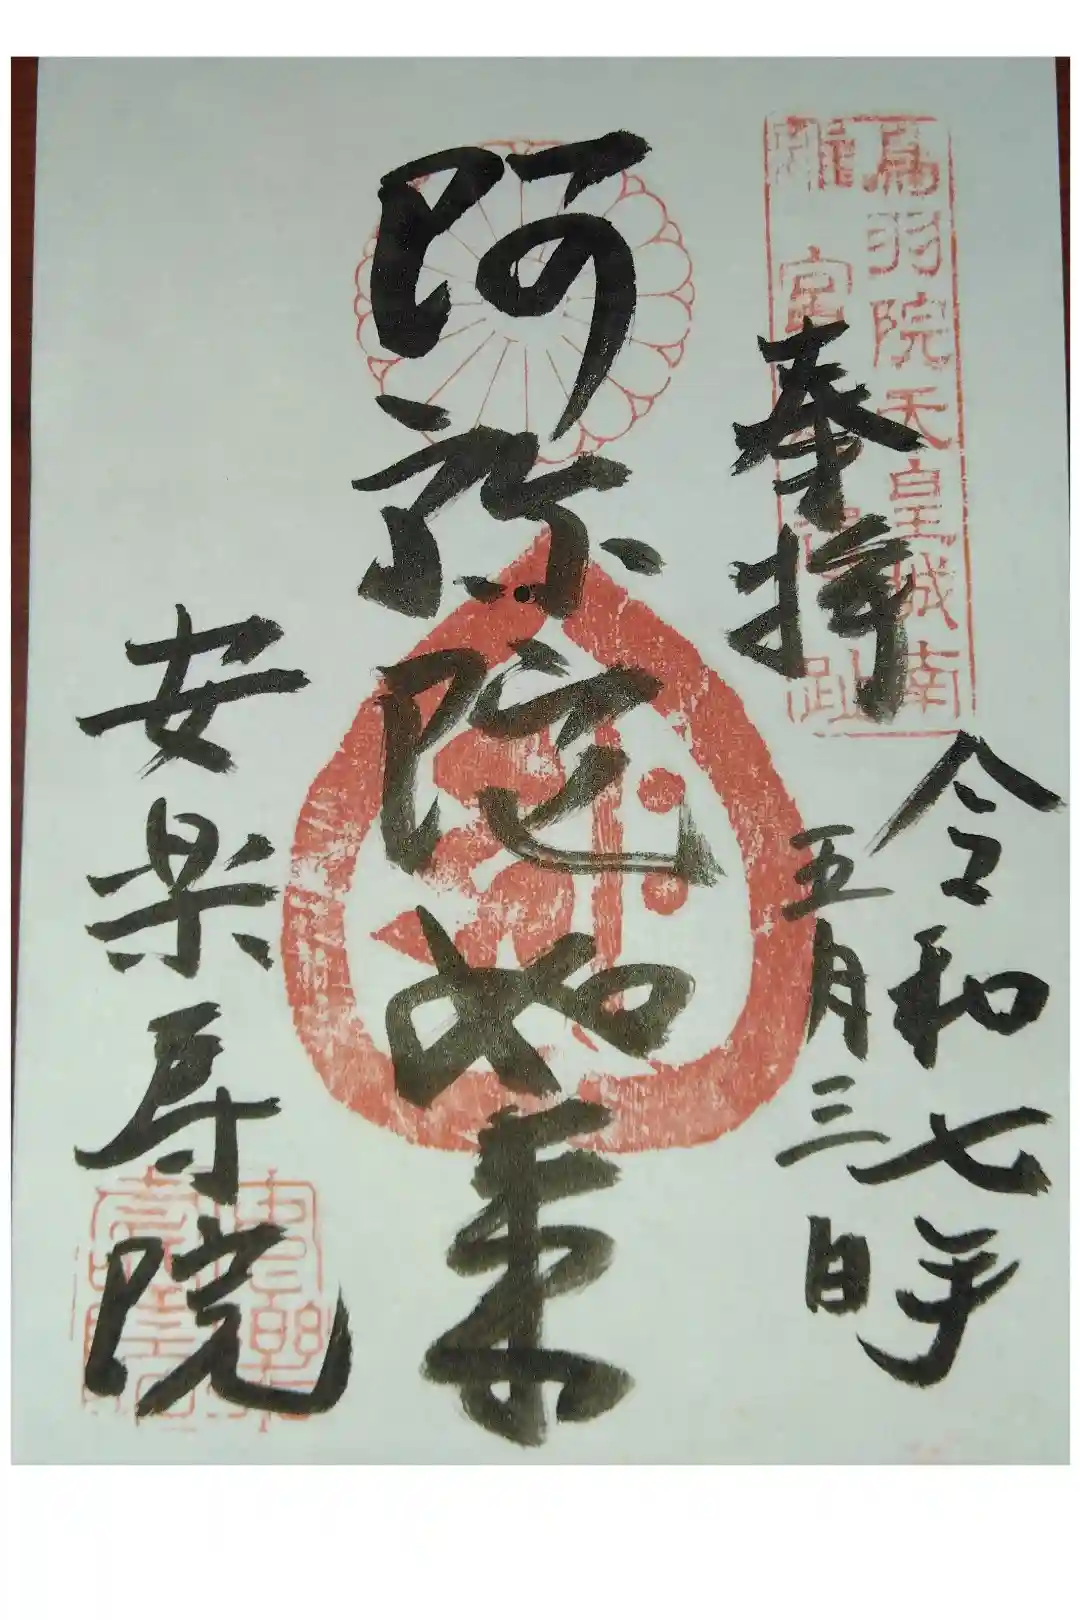 奉拝
鳥羽院天皇城南
離宮
趾
令和七年
五月三日
阿弥陀如来
安楽寿院